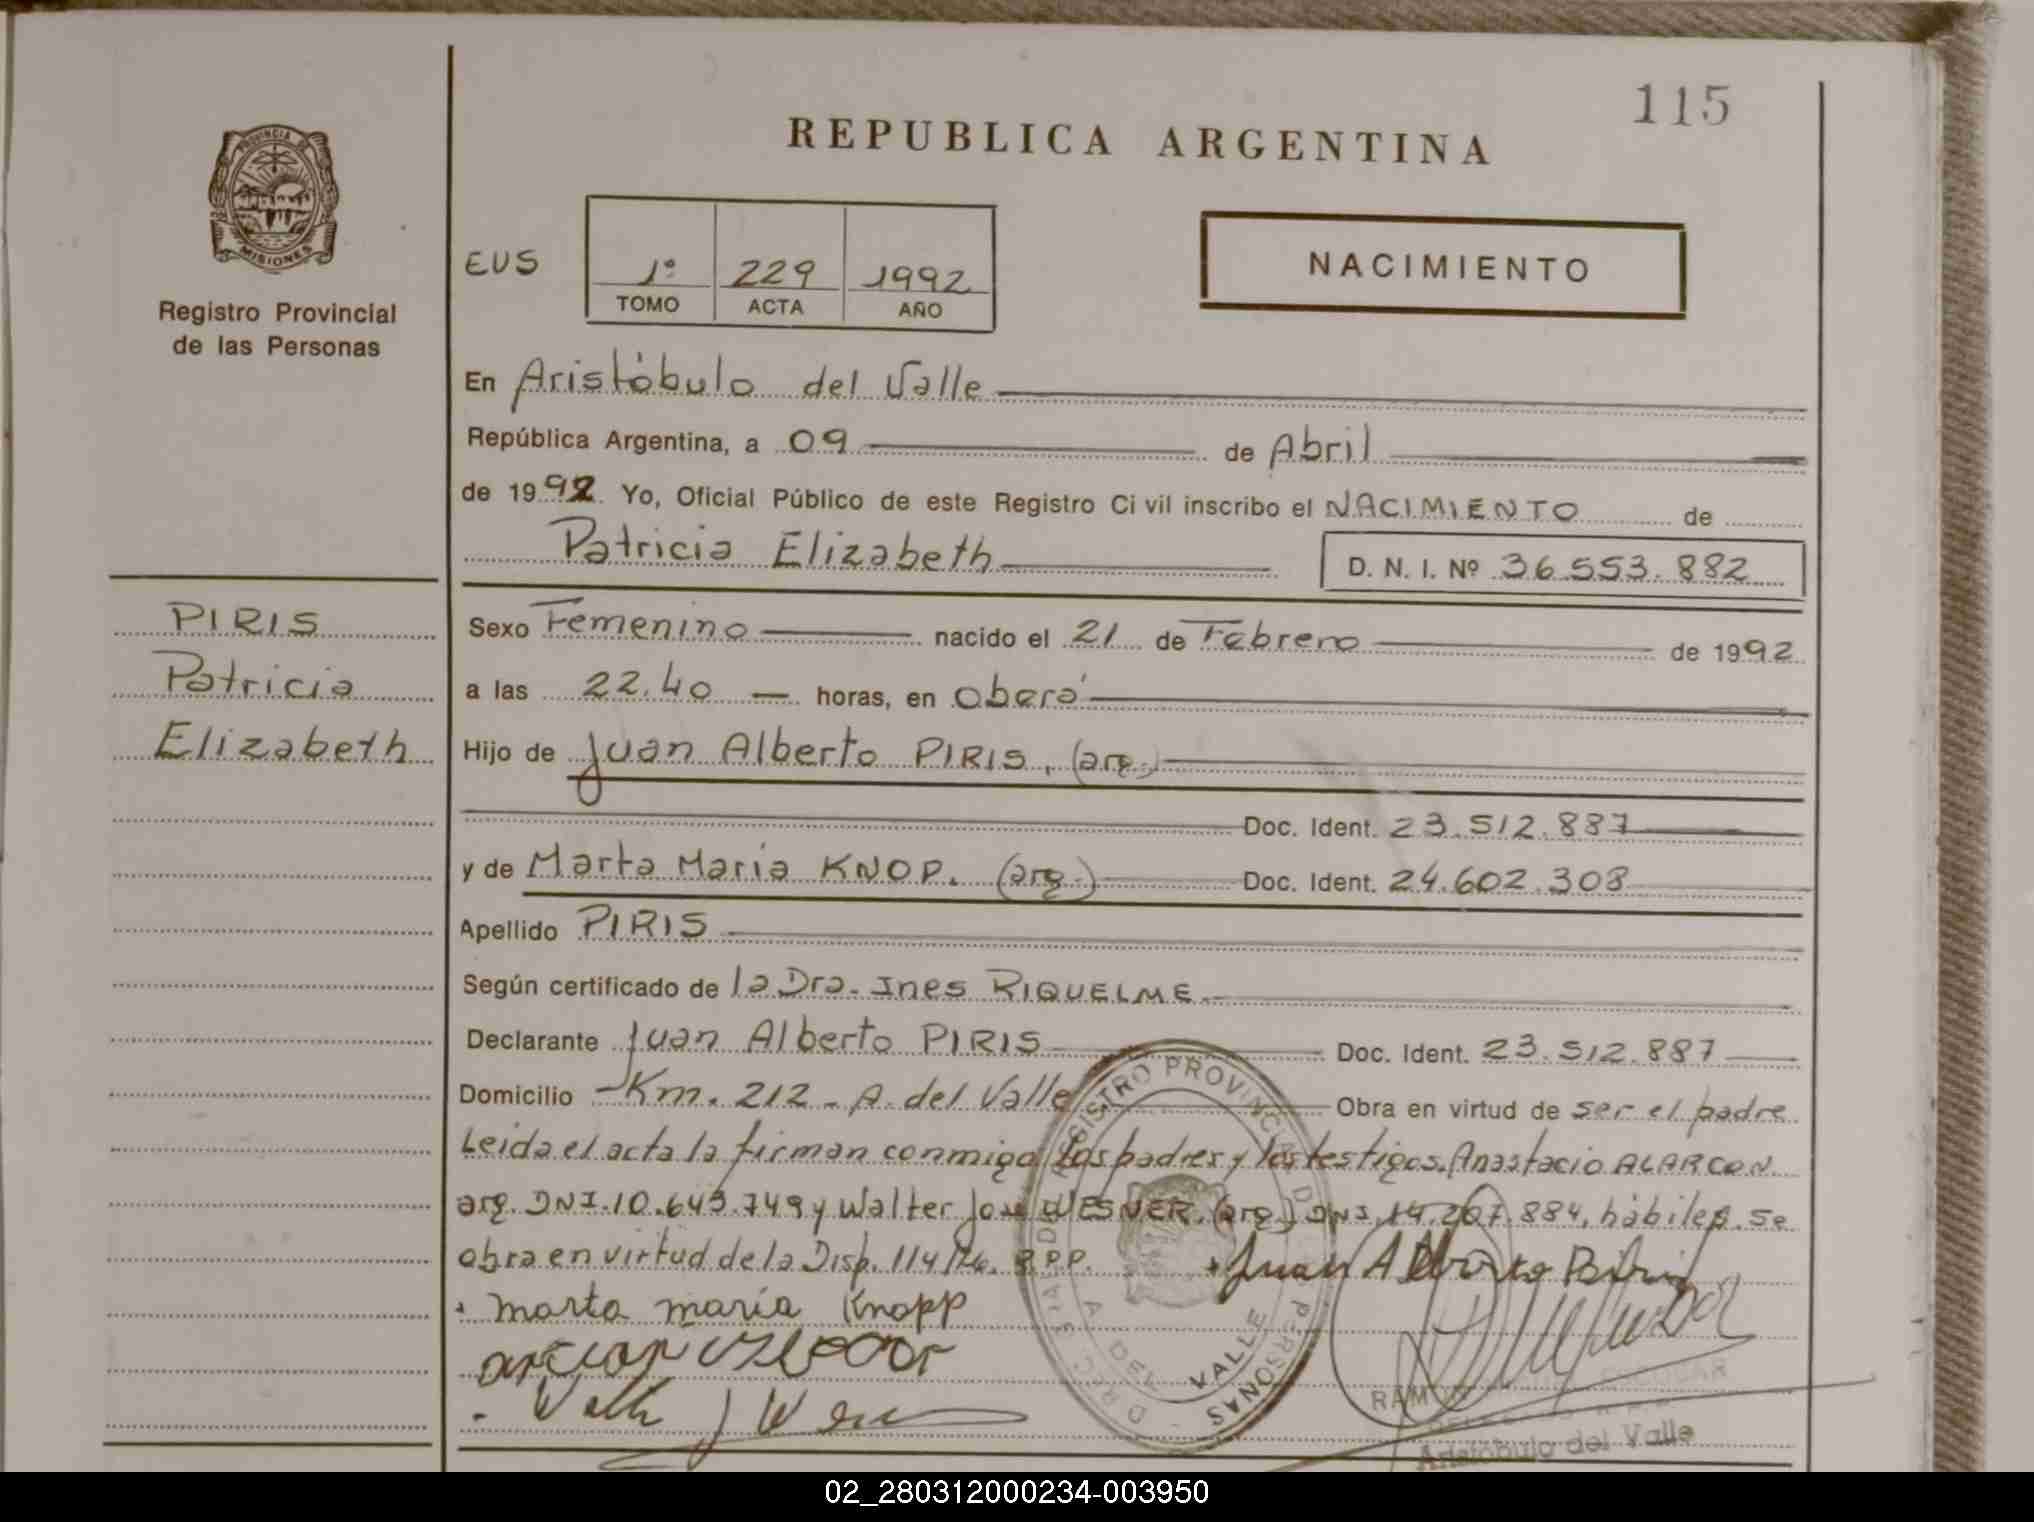 115
REPUBLICA ARGENTINA
PROVINCIA DE
MISIONES
Registro Provincial
de las Personas
EUS
1º 229 1992
TOMO ACTA AÑO
NACIMIENTO
En Aristóbulo del Valle
República Argentina, a 09 de Abril
de 1992 Yo, Oficial Público de este Registro Civil inscribo el NACIMIENTO de
Patricia Elizabeth D. N. I. Nº 36.553.882
PIRIS
Patricia
Elizabeth
Sexo Femenino nacido el 21 de Febrero de 1992
a las 22.40 horas, en Oberá
Hijo de Juan Alberto PIRIS, (arg.)
Doc. Ident. 23.512.887
y de Marta Maria KNOP. (arg.) Doc. Ident. 24.602.308
Apellido PIRIS
Según certificado de la Dra. Ines RIQUELME
Declarante Juan Alberto PIRIS Doc. Ident. 23.512.887
Domicilio Km. 212 - A. del Valle Obra en virtud de ser el padre
Leida el acta la firman conmigo los padres y los testigos. Anastacio ALARCON
arg. DNI.10.643.749 y Walter José WESNER. (arg.) DNI.14.207.884, hábiles. Se
obra en virtud de la Disp. 114/ R.P.P. Juan Alberto Piris
Marta maría Knopp
REGISTRO PROVINCIAL DE LAS PERSONAS
A. DEL VALLE
RAMON ESCOBAR
Aristóbulo del Valle
02_280312000234-003950